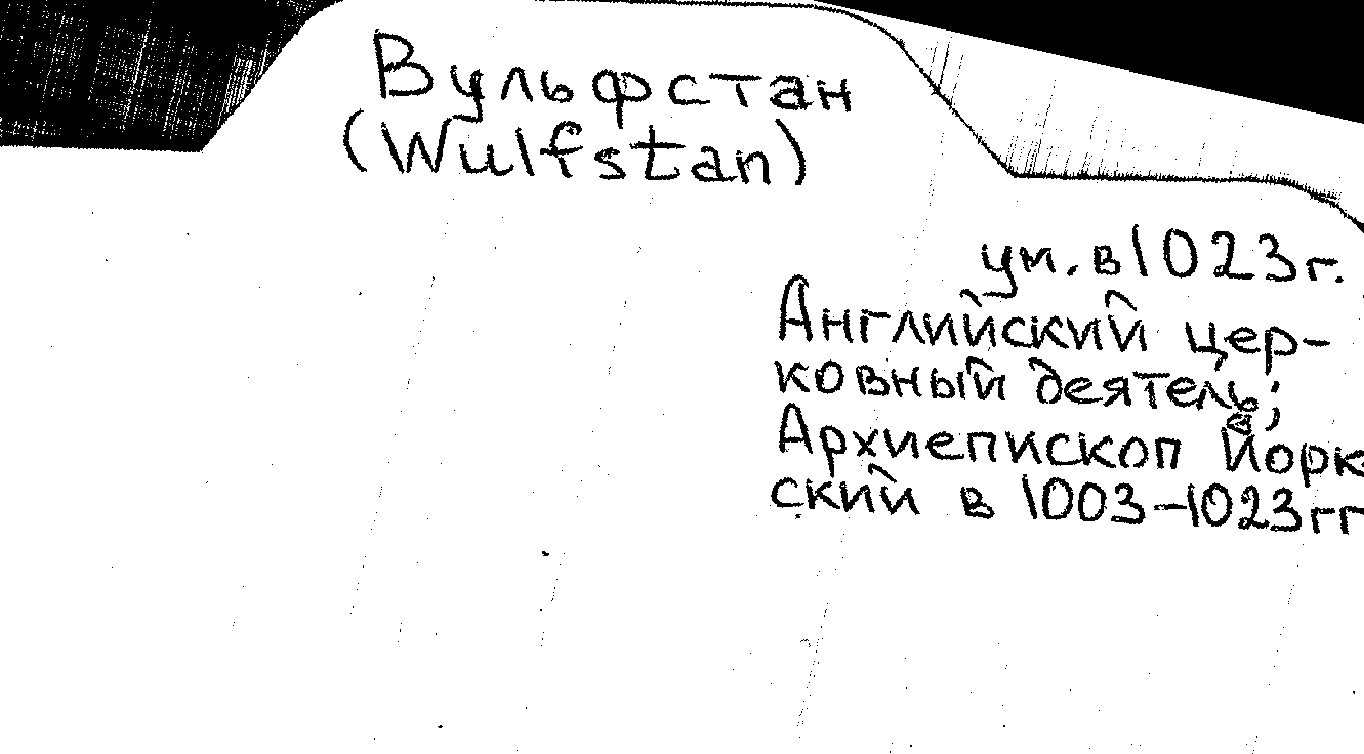 Вульфстан
(Wulfstan)
ум. в 1023 г.
Английский цер-
ковный деятель;
Архиепископ Йорк
ский в 1003-1023 гг